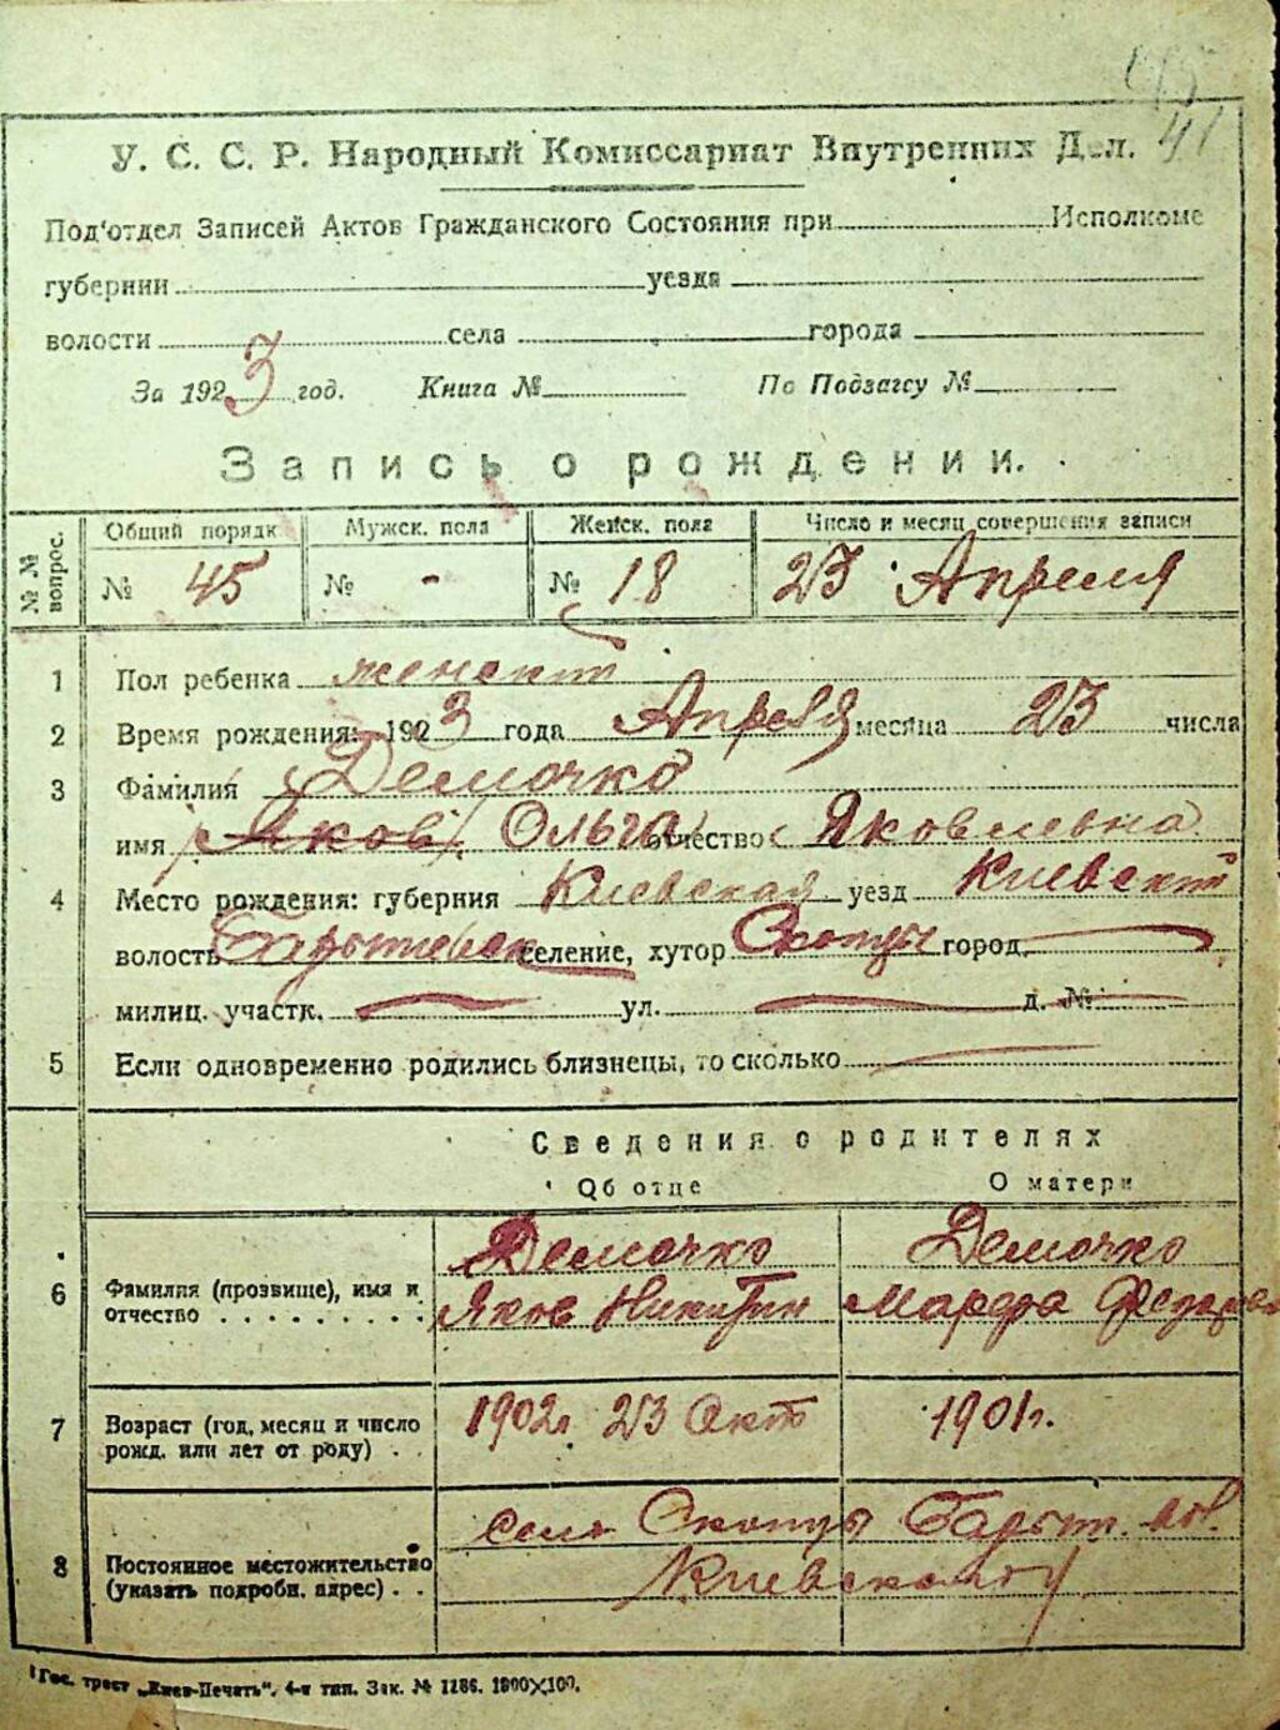 45
41
У. С. С. Р. Народный Комиссариат Внутренних Дел.
Под'отдел Записей Актов Гражданского Состояния при Исполкоме
губернии уезда
волости села города
За 1923 год. Книга № По Подзагсу №
Запись о рождении.
№№ вопрос. Общий порядк Мужск. пола Женск. пола Число и месяц совершения записи
№ 45 № - № 18 23 Апреля
1 Пол ребенка женский
2 Время рождения: 1923 года Апреля месяца 23 числа
3 Фамилия Демочко
имя Яков Ольга отчество Яковлевна
4 Место рождения: губерния Киевская уезд Киевский
волость селение, хутор Скопцы город
милиц. участк. ул. д. №
5 Если одновременно родились близнецы, то сколько
Сведения о родителях
Об отце О матери
6 Фамилия (прозвище), имя и отчество Демочко Демочко
Яков Никитин Марфа
7 Возраст (год, месяц и число рожд. или лет от роду) 1902г. 23 Окт 1901г.
8 Постоянное местожительство (указать подробн. адрес) село Скопцы Барыш. вол.
Киевского у
Гос. трест „Киев-Печать", 4-я тип. Зак. № 1286. 1000X100.